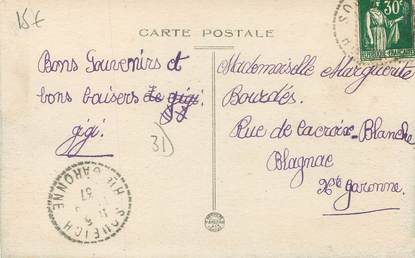 15€
CARTE POSTALE
30c
Bons Souvenirs et
bons baisers
gigi.
31
Mademoiselle Marguerite
Bourdés.
Rue de lacroix. Blanche
Blagnac
Hte garonne.
SOUEICH
Hte GARONNE
37